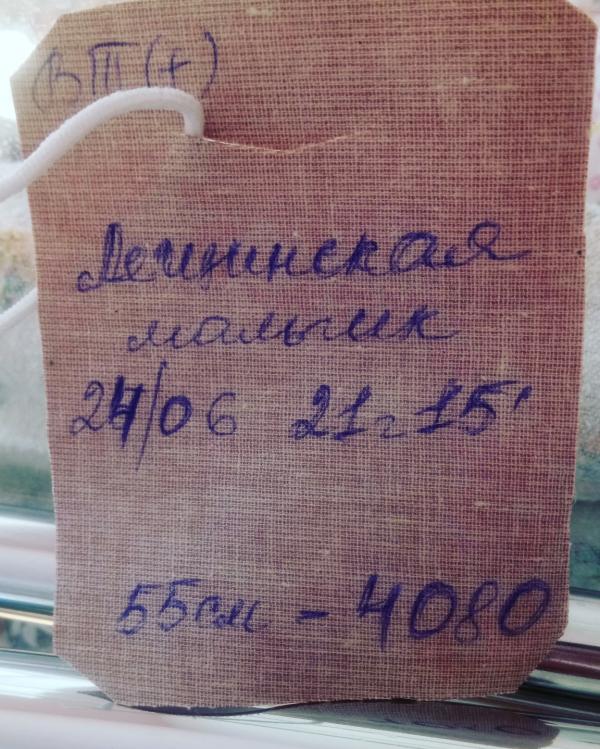 ВIII(+)
Лещинская
мальчик
24/06 21ч 15'
55см - 4080